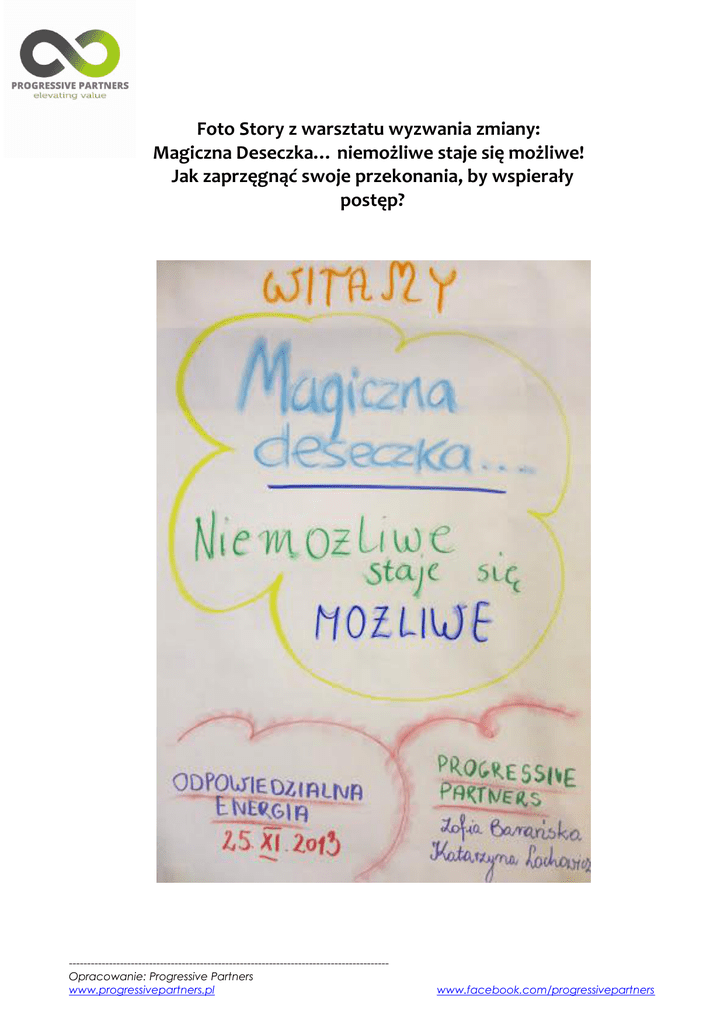 PROGRESSIVE PARTNERS
elevating value
Foto Story z warsztatu wyzwania zmiany:
Magiczna Deseczka… niemożliwe staje się możliwe!
Jak zaprzęgnąć swoje przekonania, by wspierały
postęp?
WITAMY
Magiczna
deseczka....
Niemożliwe
staje się
MOŻLIWE
ODPOWIEDZIALNA
ENERGIA
25.XI.2013
PROGRESSIVE
PARTNERS
Zofia Barańska
Katarzyna Lochowicz
--------------------------------------------------------------------------------------
Opracowanie: Progressive Partners
www.progressivepartners.pl
www.facebook.com/progressivepartners